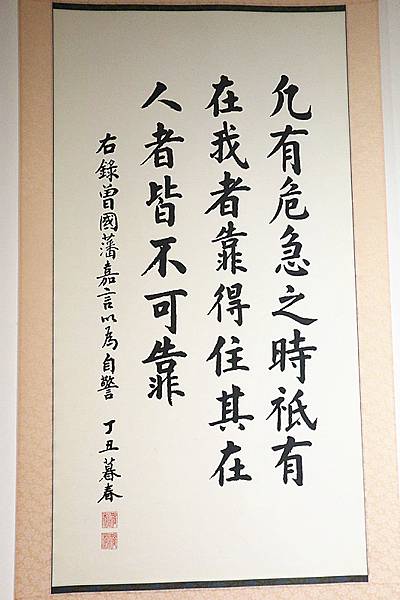 凡有危急之時祇有
在我者靠得住其在
人者皆不可靠
右錄曾國藩嘉言以為自警 丁丑暮春